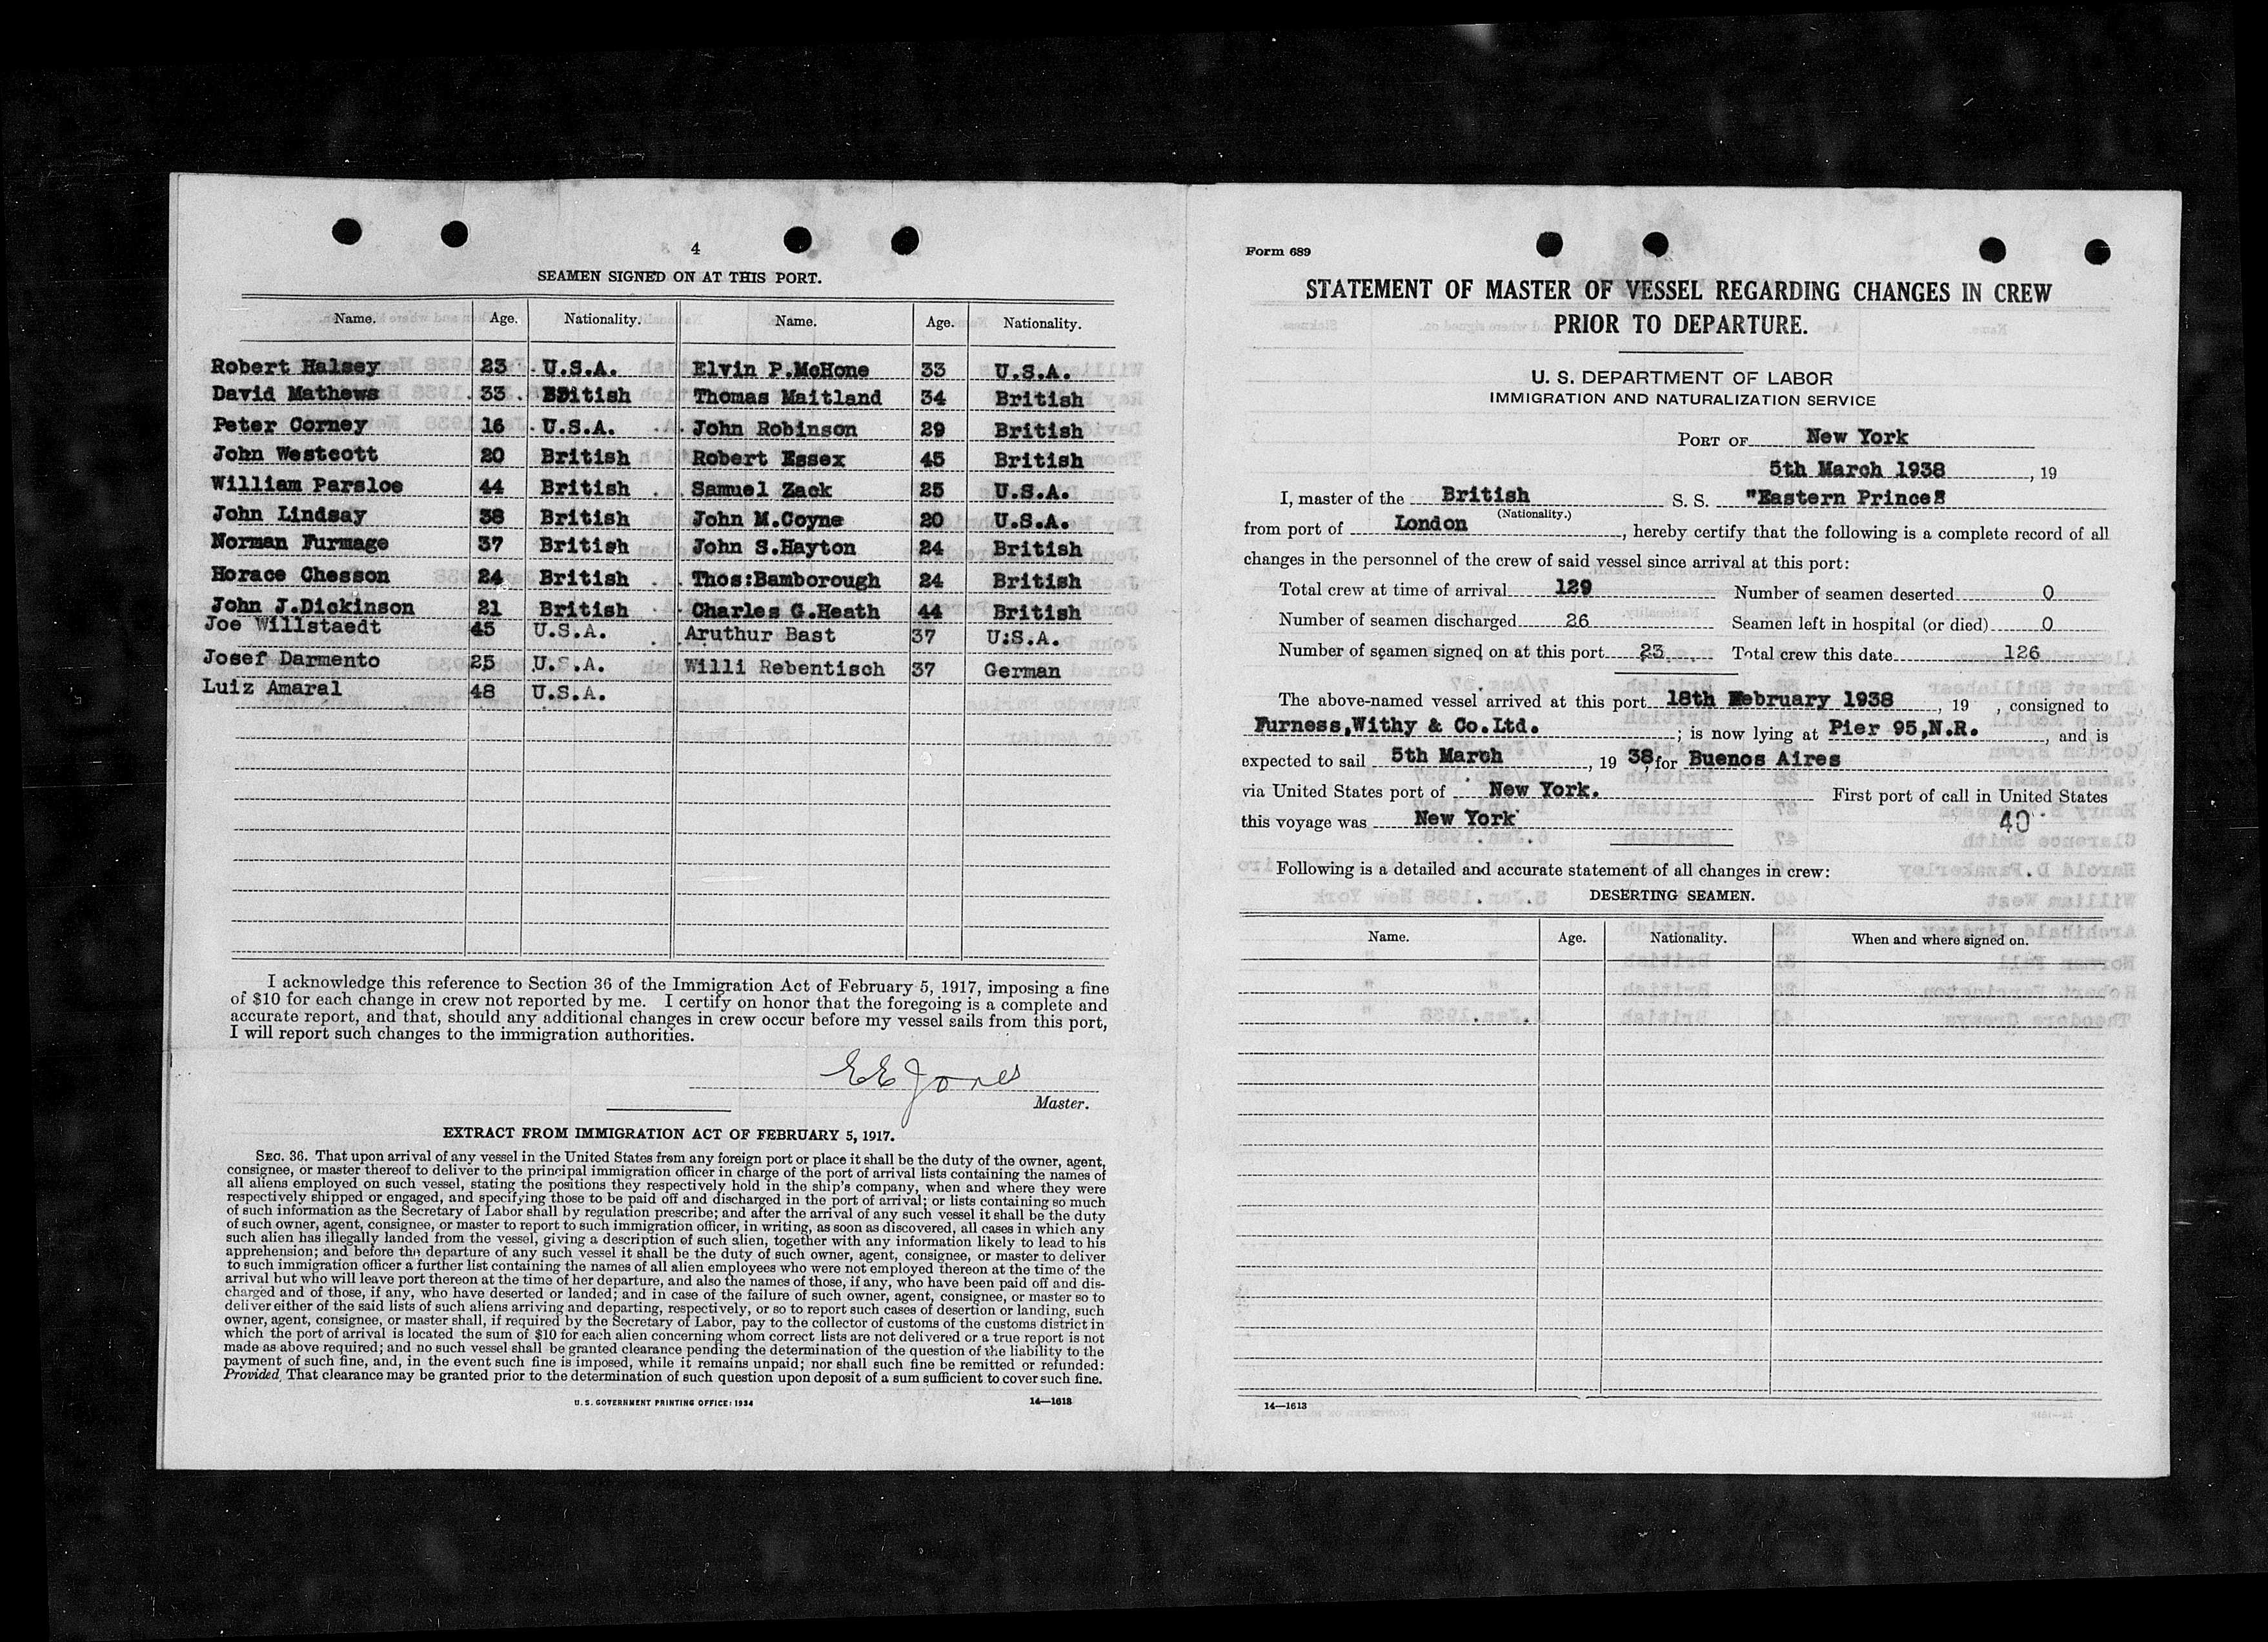 4
SEAMEN SIGNED ON AT THIS PORT.
Name. Age. Nationality. Name. Age. Nationality.
Robert Halsey 23 U.S.A. Elvin P.McHone 33 U.S.A.
David Mathews 33 British Thomas Maitland 34 British
Peter Corney 16 U.S.A. John Robinson 29 British
John Westcott 20 British Robert Essex 45 British
William Parsloe 44 British Samuel Zack 25 U.S.A.
John Lindsay 38 British John M.Coyne 20 U.S.A.
Norman Furmage 37 British John S.Hayton 24 British
Horace Chesson 24 British Thos:Bamborough 24 British
John J.Dickinson 21 British Charles G.Heath 44 British
Joe Willstaedt 45 U.S.A. Aruthur Bast 37 U:S.A.
Josef Darmento 25 U.S.A. Willi Rebentisch 37 German
Luiz Amaral 48 U.S.A.
I acknowledge this reference to Section 36 of the Immigration Act of February 5, 1917, imposing a fine
of $10 for each change in crew not reported by me. I certify on honor that the foregoing is a complete and
accurate report, and that, should any additional changes in crew occur before my vessel sails from this port,
I will report such changes to the immigration authorities.
E E Jones
Master.
EXTRACT FROM IMMIGRATION ACT OF FEBRUARY 5, 1917.
SEC. 36. That upon arrival of any vessel in the United States from any foreign port or place it shall be the duty of the owner, agent,
consignee, or master thereof to deliver to the principal immigration officer in charge of the port of arrival lists containing the names of
all aliens employed on such vessel, stating the positions they respectively hold in the ship's company, when and where they were
respectively shipped or engaged, and specifying those to be paid off and discharged in the port of arrival; or lists containing so much
of such information as the Secretary of Labor shall by regulation prescribe; and after the arrival of any such vessel it shall be the duty
of such owner, agent, consignee, or master to report to such immigration officer, in writing, as soon as discovered, all cases in which any
such alien has illegally landed from the vessel, giving a description of such alien, together with any information likely to lead to his
apprehension; and before the departure of any such vessel it shall be the duty of such owner, agent, consignee, or master to deliver
to such immigration officer a further list containing the names of all alien employees who were not employed thereon at the time of the
arrival but who will leave port thereon at the time of her departure, and also the names of those, if any, who have been paid off and dis-
charged and of those, if any, who have deserted or landed; and in case of the failure of such owner, agent, consignee, or master so to
deliver either of the said lists of such aliens arriving and departing, respectively, or so to report such cases of desertion or landing, such
owner, agent, consignee, or master shall, if required by the Secretary of Labor, pay to the collector of customs of the customs district in
which the port of arrival is located the sum of $10 for each alien concerning whom correct lists are not delivered or a true report is not
made as above required; and no such vessel shall be granted clearance pending the determination of the question of the liability to the
payment of such fine, and, in the event such fine is imposed, while it remains unpaid; nor shall such fine be remitted or refunded:
Provided, That clearance may be granted prior to the determination of such question upon deposit of a sum sufficient to cover such fine.
U. S. GOVERNMENT PRINTING OFFICE: 1934 14—1613
Form 689
STATEMENT OF MASTER OF VESSEL REGARDING CHANGES IN CREW
PRIOR TO DEPARTURE.
U. S. DEPARTMENT OF LABOR
IMMIGRATION AND NATURALIZATION SERVICE
PORT OF New York
5th March 1938, 19
I, master of the British S. S. "Eastern Prince"
(Nationality.)
from port of London, hereby certify that the following is a complete record of all
changes in the personnel of the crew of said vessel since arrival at this port:
Total crew at time of arrival 129 Number of seamen deserted 0
Number of seamen discharged 26 Seamen left in hospital (or died) 0
Number of seamen signed on at this port 23 Total crew this date 126
The above-named vessel arrived at this port 18th February 1938, 19 , consigned to
Furness,Withy & Co.Ltd. ; is now lying at Pier 95,N.R. , and is
expected to sail 5th March, 19 38, for Buenos Aires
via United States port of New York. First port of call in United States
this voyage was New York 40
Following is a detailed and accurate statement of all changes in crew:
DESERTING SEAMEN.
Name. Age. Nationality. When and where signed on.
14—1613